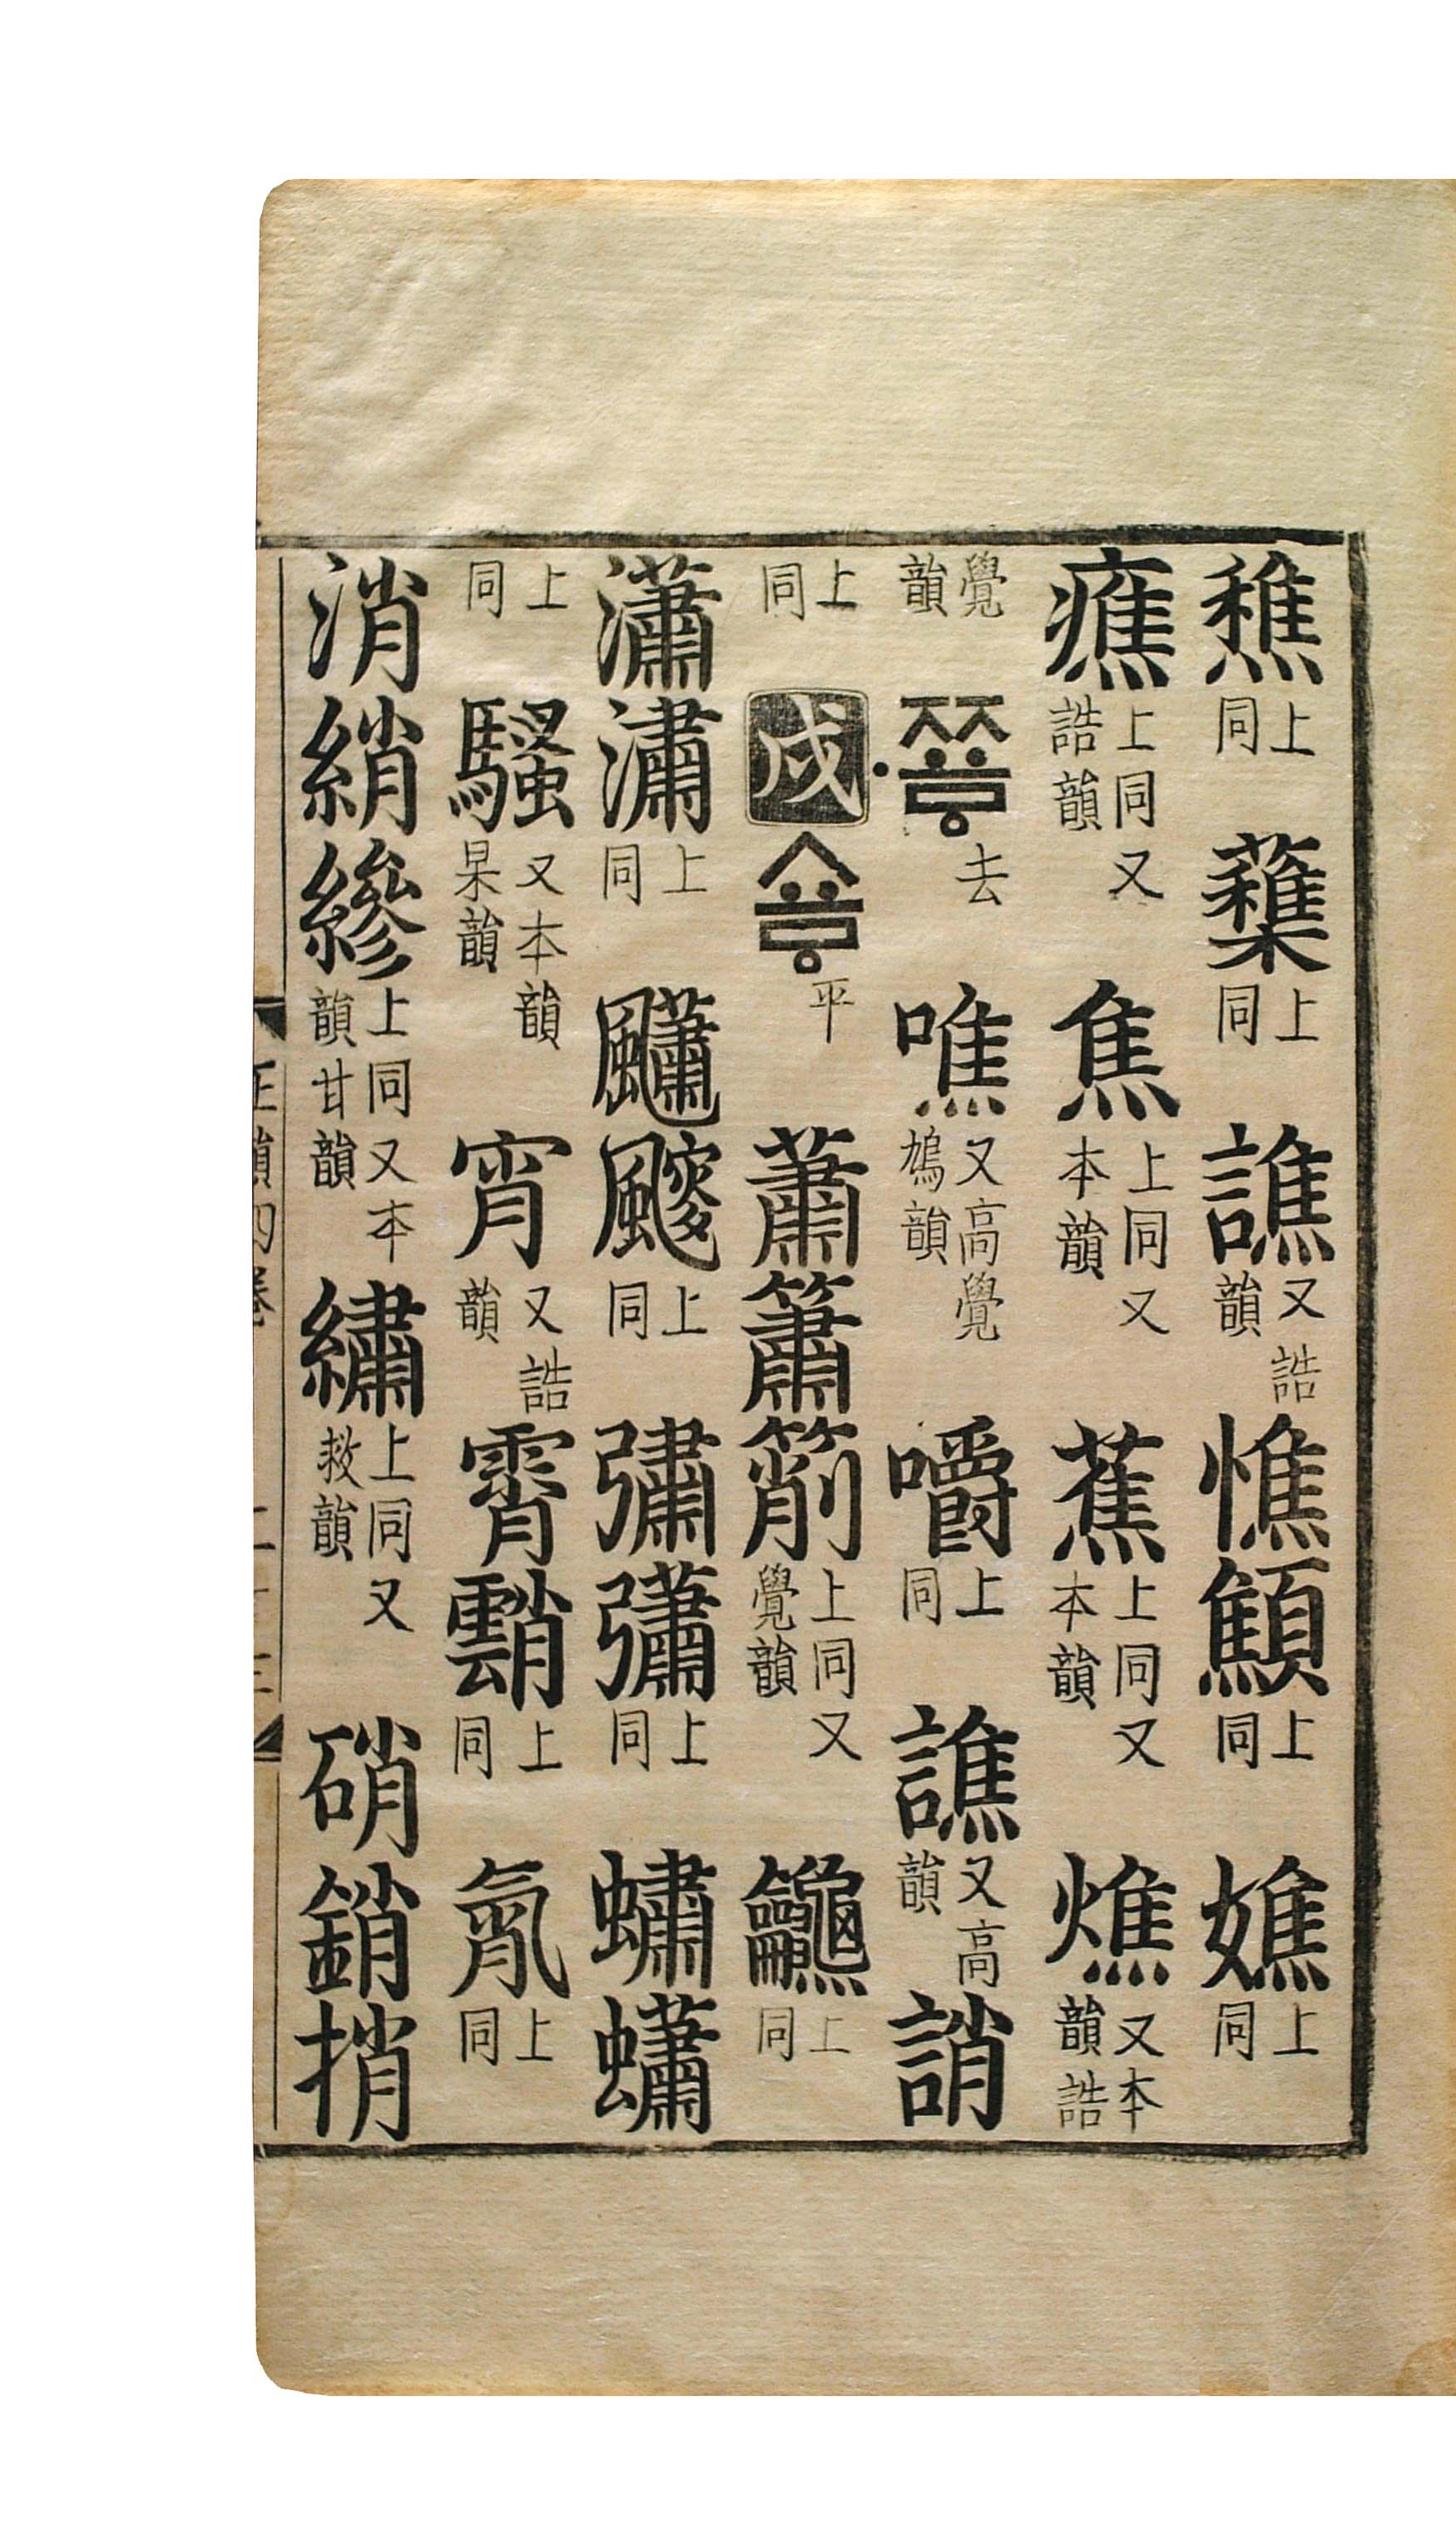 穛上同 上同譙又誥韻憔顦上同嫶上同
癄上同又誥韻焦上同又本韻蕉上同又本韻燋又本韻誥
覺韻·ᅏᅭᇢ去噍又高覺鳩韻嚼上同譙又高韻誚
上同戌ᄼᅭᇢ平蕭簫箾上同又覺韻 上同
瀟潚上同 上同彇 上同蟰蠨
上同騷又本韻杲韻宵又誥韻霄 上同 上同
消綃縿上同又本韻甘韻繡上同又救韻硝銷捎
正韻四卷 二十三